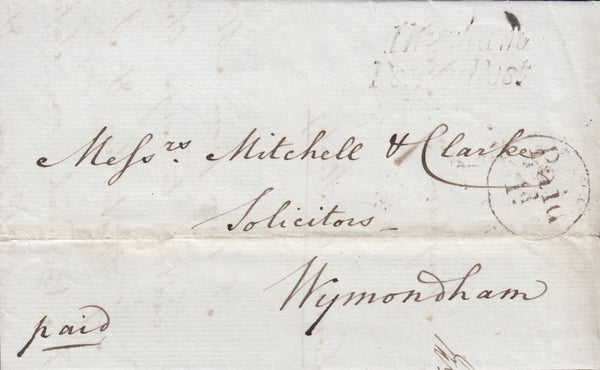 Penny Post
Messrs. Mitchell & Clarke
Solicitors
Paid
Wymondham
paid